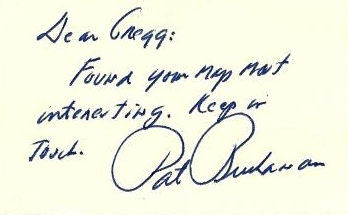 Dear Gregg:
Found your map most
interesting. Keep in
Touch.
Pat Buchanan